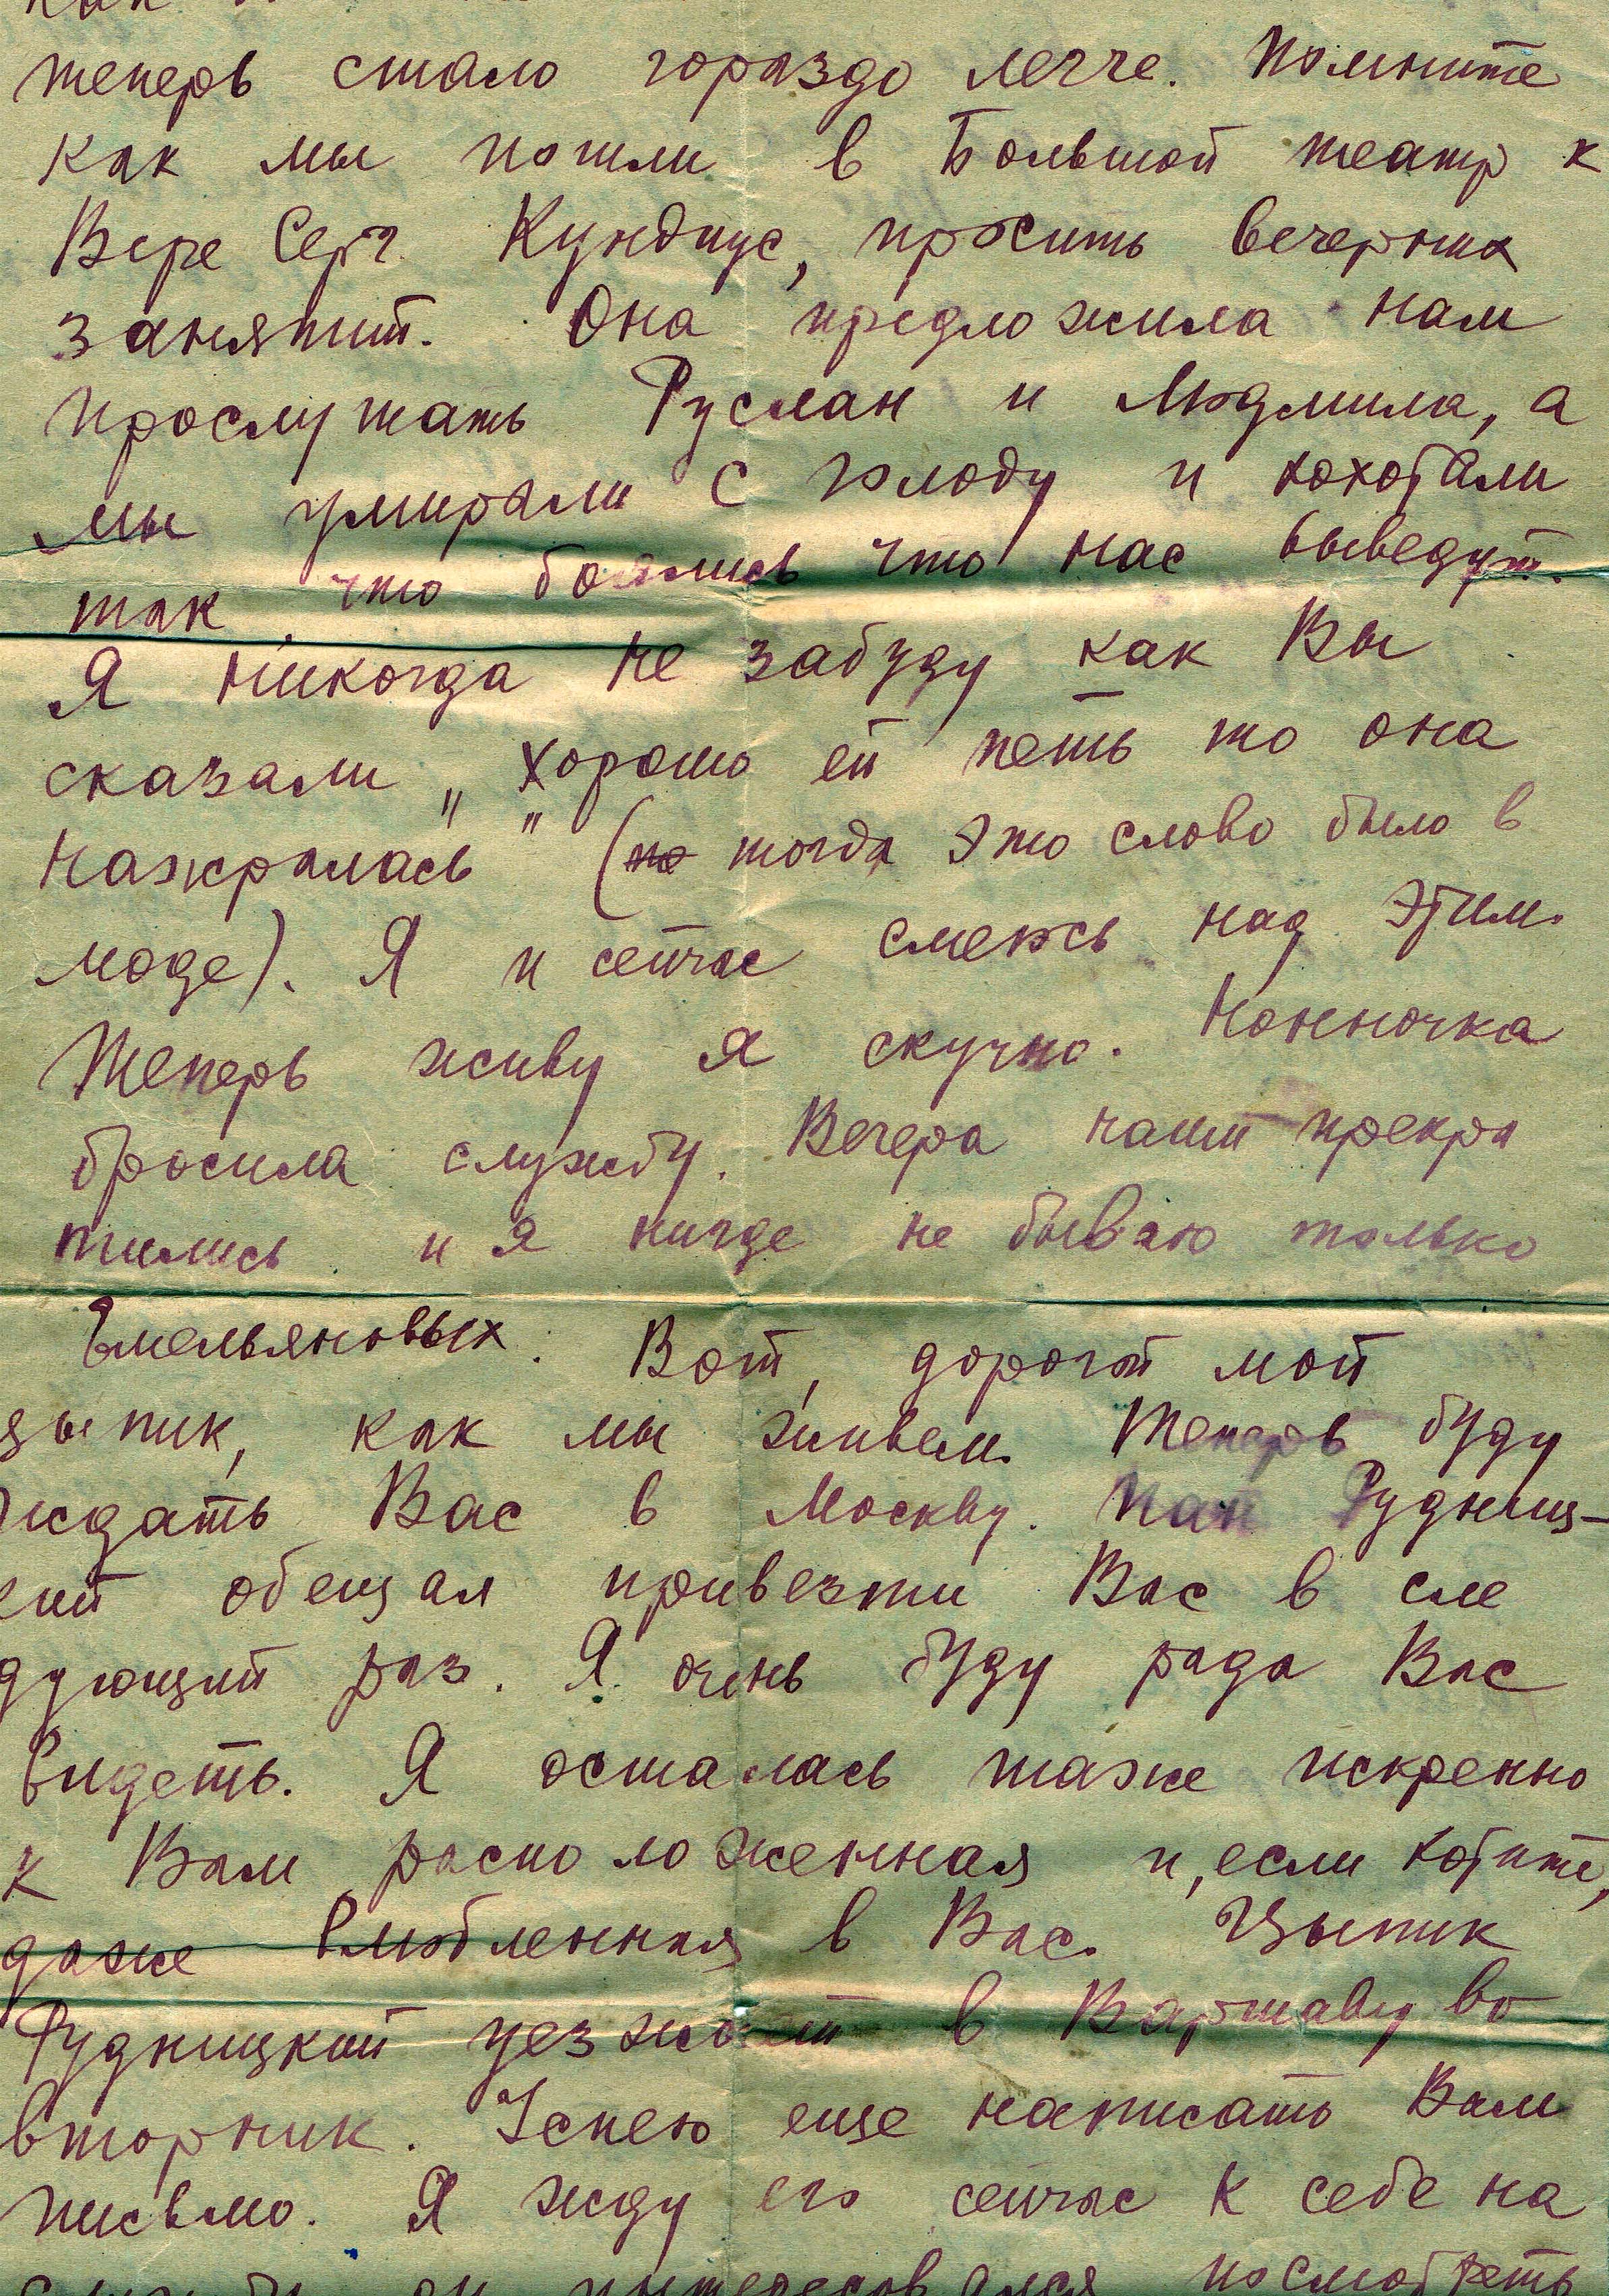 теперь стало гораздо легче. Помните
как мы пошли в Большой театр к
Вере Серг. Кундпус, просить вечерних
занятий. Она предложила нам
прослушать Руслан и Людмила, а
мы умирали с голоду и хохотали
так, что боялись что нас выведут.
Я никогда не забуду как Вы
сказали „Хорошо ей петь то она
нажралась" (но тогда это слово было в
моде). Я и сейчас смеюсь над этим.
Теперь живу я скучно. Нонночка
бросила службу. Вечера наши прекра
тились и я нигде не бываю только
Емельяновых. Вот, дорогой мой
цыпик, как мы живем. Теперь буду
ждать Вас в Москву. Пан Рудниц-
кий обещал привезти Вас в сле
дующий раз. Я очень буду рада Вас
видеть. Я осталась также искренно
к Вам расположенная и, если хотите,
даже влюбленная в Вас. Цыпик
Рудницкий уезжает в Варшаву во
вторник. Успею еще написать Вам
письмо. Я жду его сейчас к себе на
он интересовался посмотреть